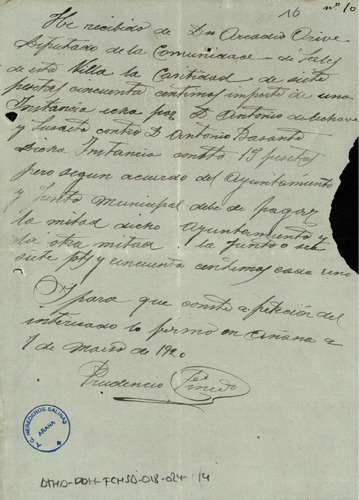 16 nº 10
He recibido de Dn Arcadio Orive
Diputado de la Comunidad de Sales
de esta Villa la Cantidad de siete
pesetas cincuenta centimos importe de una
Instancia echa por D. Antonio
y contra D. Antonio Basante
Dicha Instancia costto 15 pesetas
pero segun acuerdo del Ayuntamiento
y Junta Municipal debe de pagar
la mitad dicho Ayuntamiento y
la otra mitad la Junta o sea
siete pts y cincuenta centimos cada uno
Y para que conste a peticion del
interesado lo firmo en Añana a
7 de Marzo de 1920
Prudencio Pinedo
T. C. HEREDEROS SALINAS
AÑANA
ATHA-DDH-FCHSD-018-024-14